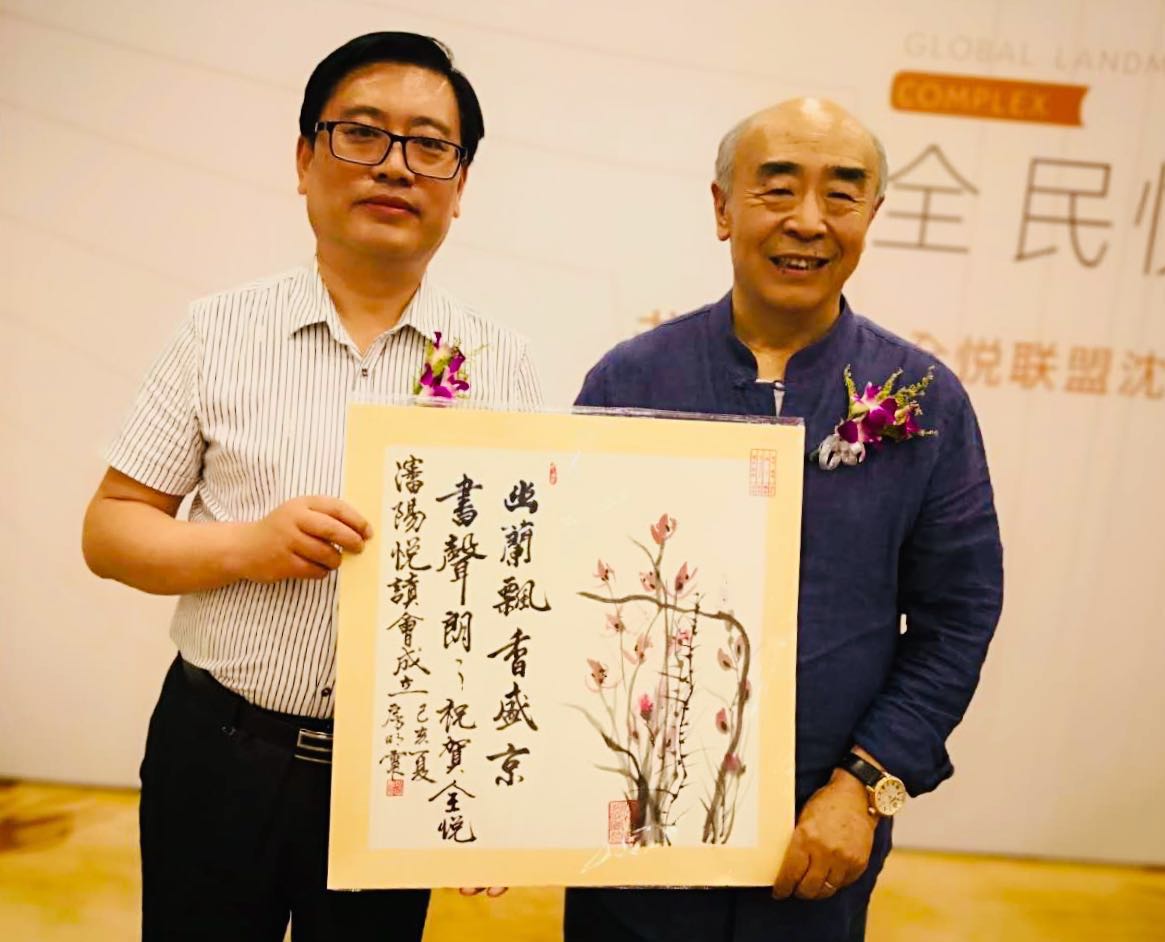 GLOBAL LANDM
COMPLEX
全民
悦联盟沈
幽蘭飄香盛京
書聲朗〻祝賀全悦
瀋陽悦讀會成立
己亥夏